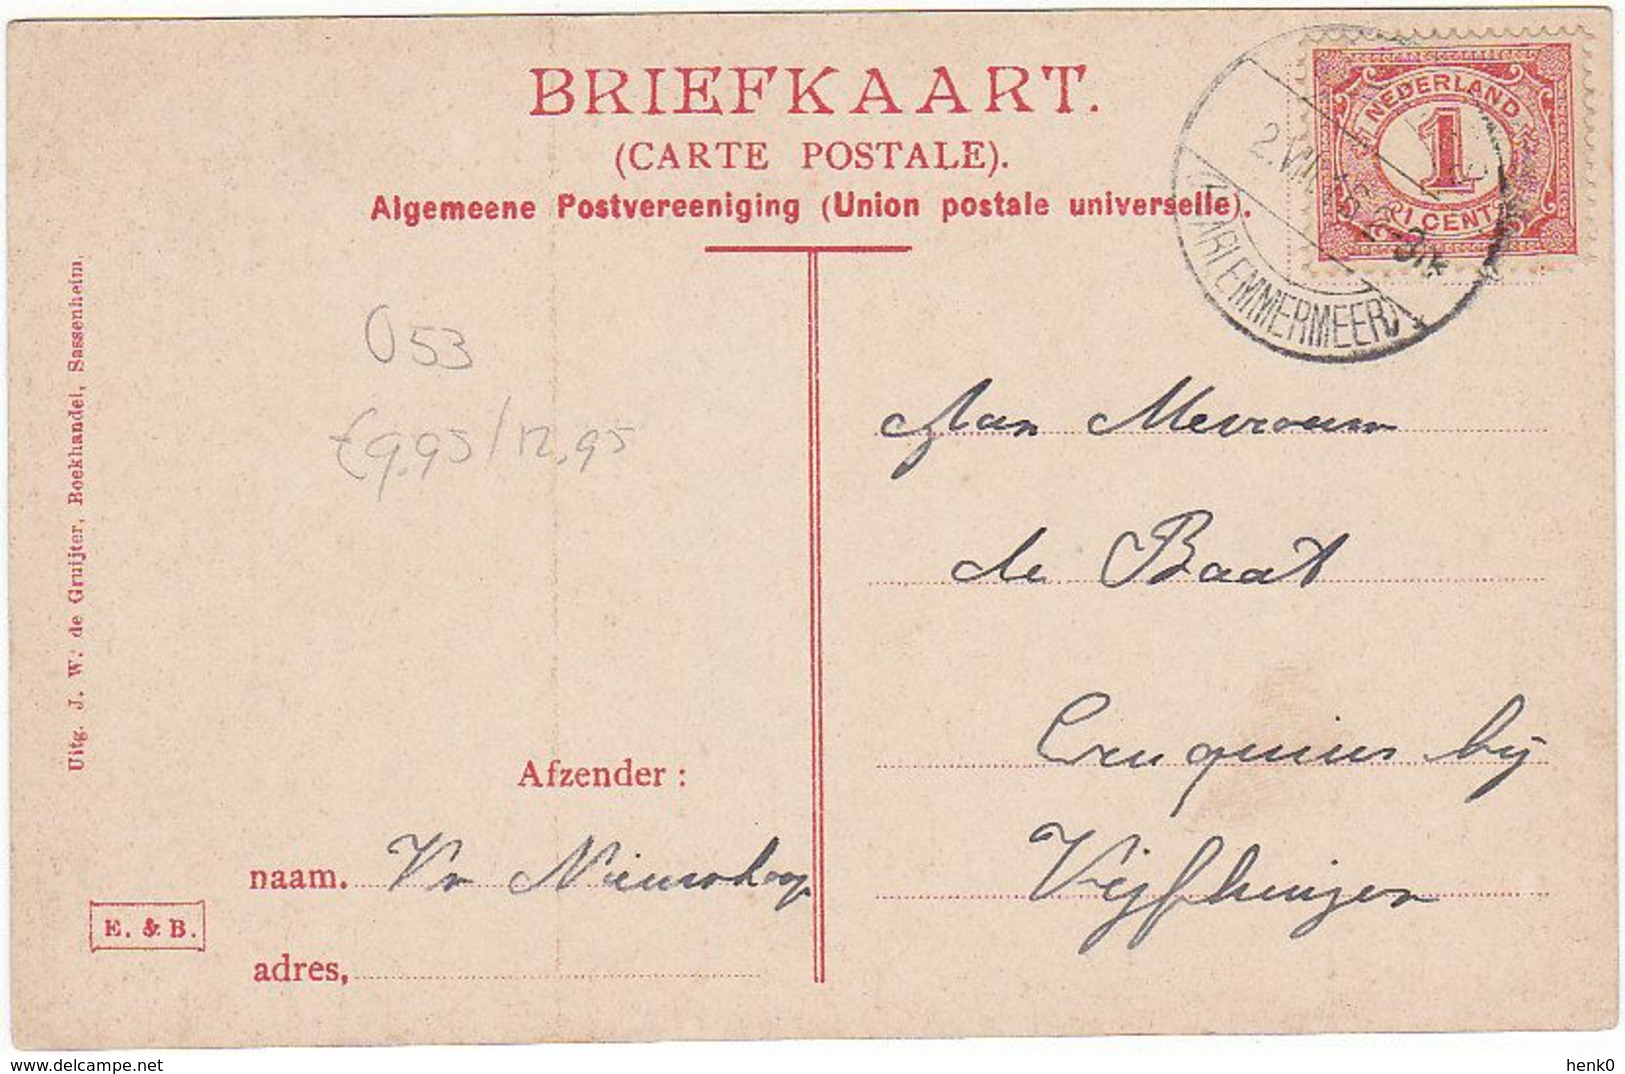 BRIEFKAART.
(CARTE POSTALE).
Algemeene Postvereeniging (Union postale universelle).
NEDERLAND
1
CENT
(HAARLEMMERMEER)
053
€9.95/12.95
Aan Mevrouw
de Baat
Cruquius bij
Vijfhuizen
Afzender:
naam. Vr Nieuwshoop
adres,
E. & B.
Uitg. J. W. de Gruijter, Boekhandel, Sassenheim.
www.delcampe.net
henk0